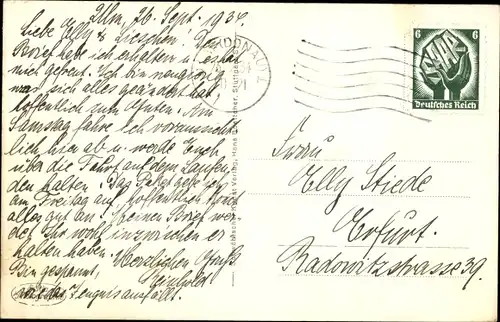 Ulm, 26. Sept. 1934
Liebe Elly & Lieschen! Den
Brief habe ich erhalten u. es hat
mich gefreut. Ich bin neugierig
was sich alles geändert hat
hoffentlich zum Guten. Am
Samstag fahre ich voraussicht
lich hier ab u. werde Euch
über die Fahrt auf dem Laufen
den halten. Das Paket gebe ich
am Freitag auf, hoffentlich kommt
alles gut an. Meinen Brief wer-
det Ihr wohl inzwischen er
halten haben. Herzlichen Gruß
Bin gespannt, Reinhold
wie das Zeugnis ausfällt.
(DONAU) 1
34
21
6 6
SAAR
Deutsches Reich
Frau
Elly Stiede
Erfurt.
Radowitzstrasse 39.